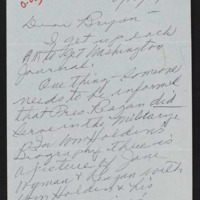 Dear Bryan –
I get up each
AM to get Washington
Journal.
One thing – someone
needs to be informed
that Pres. Reagan did
serve in the military.
In Wm Holden's
Biography there is
a picture of Jane
Wyman & Reagan with
Wm Holden & his